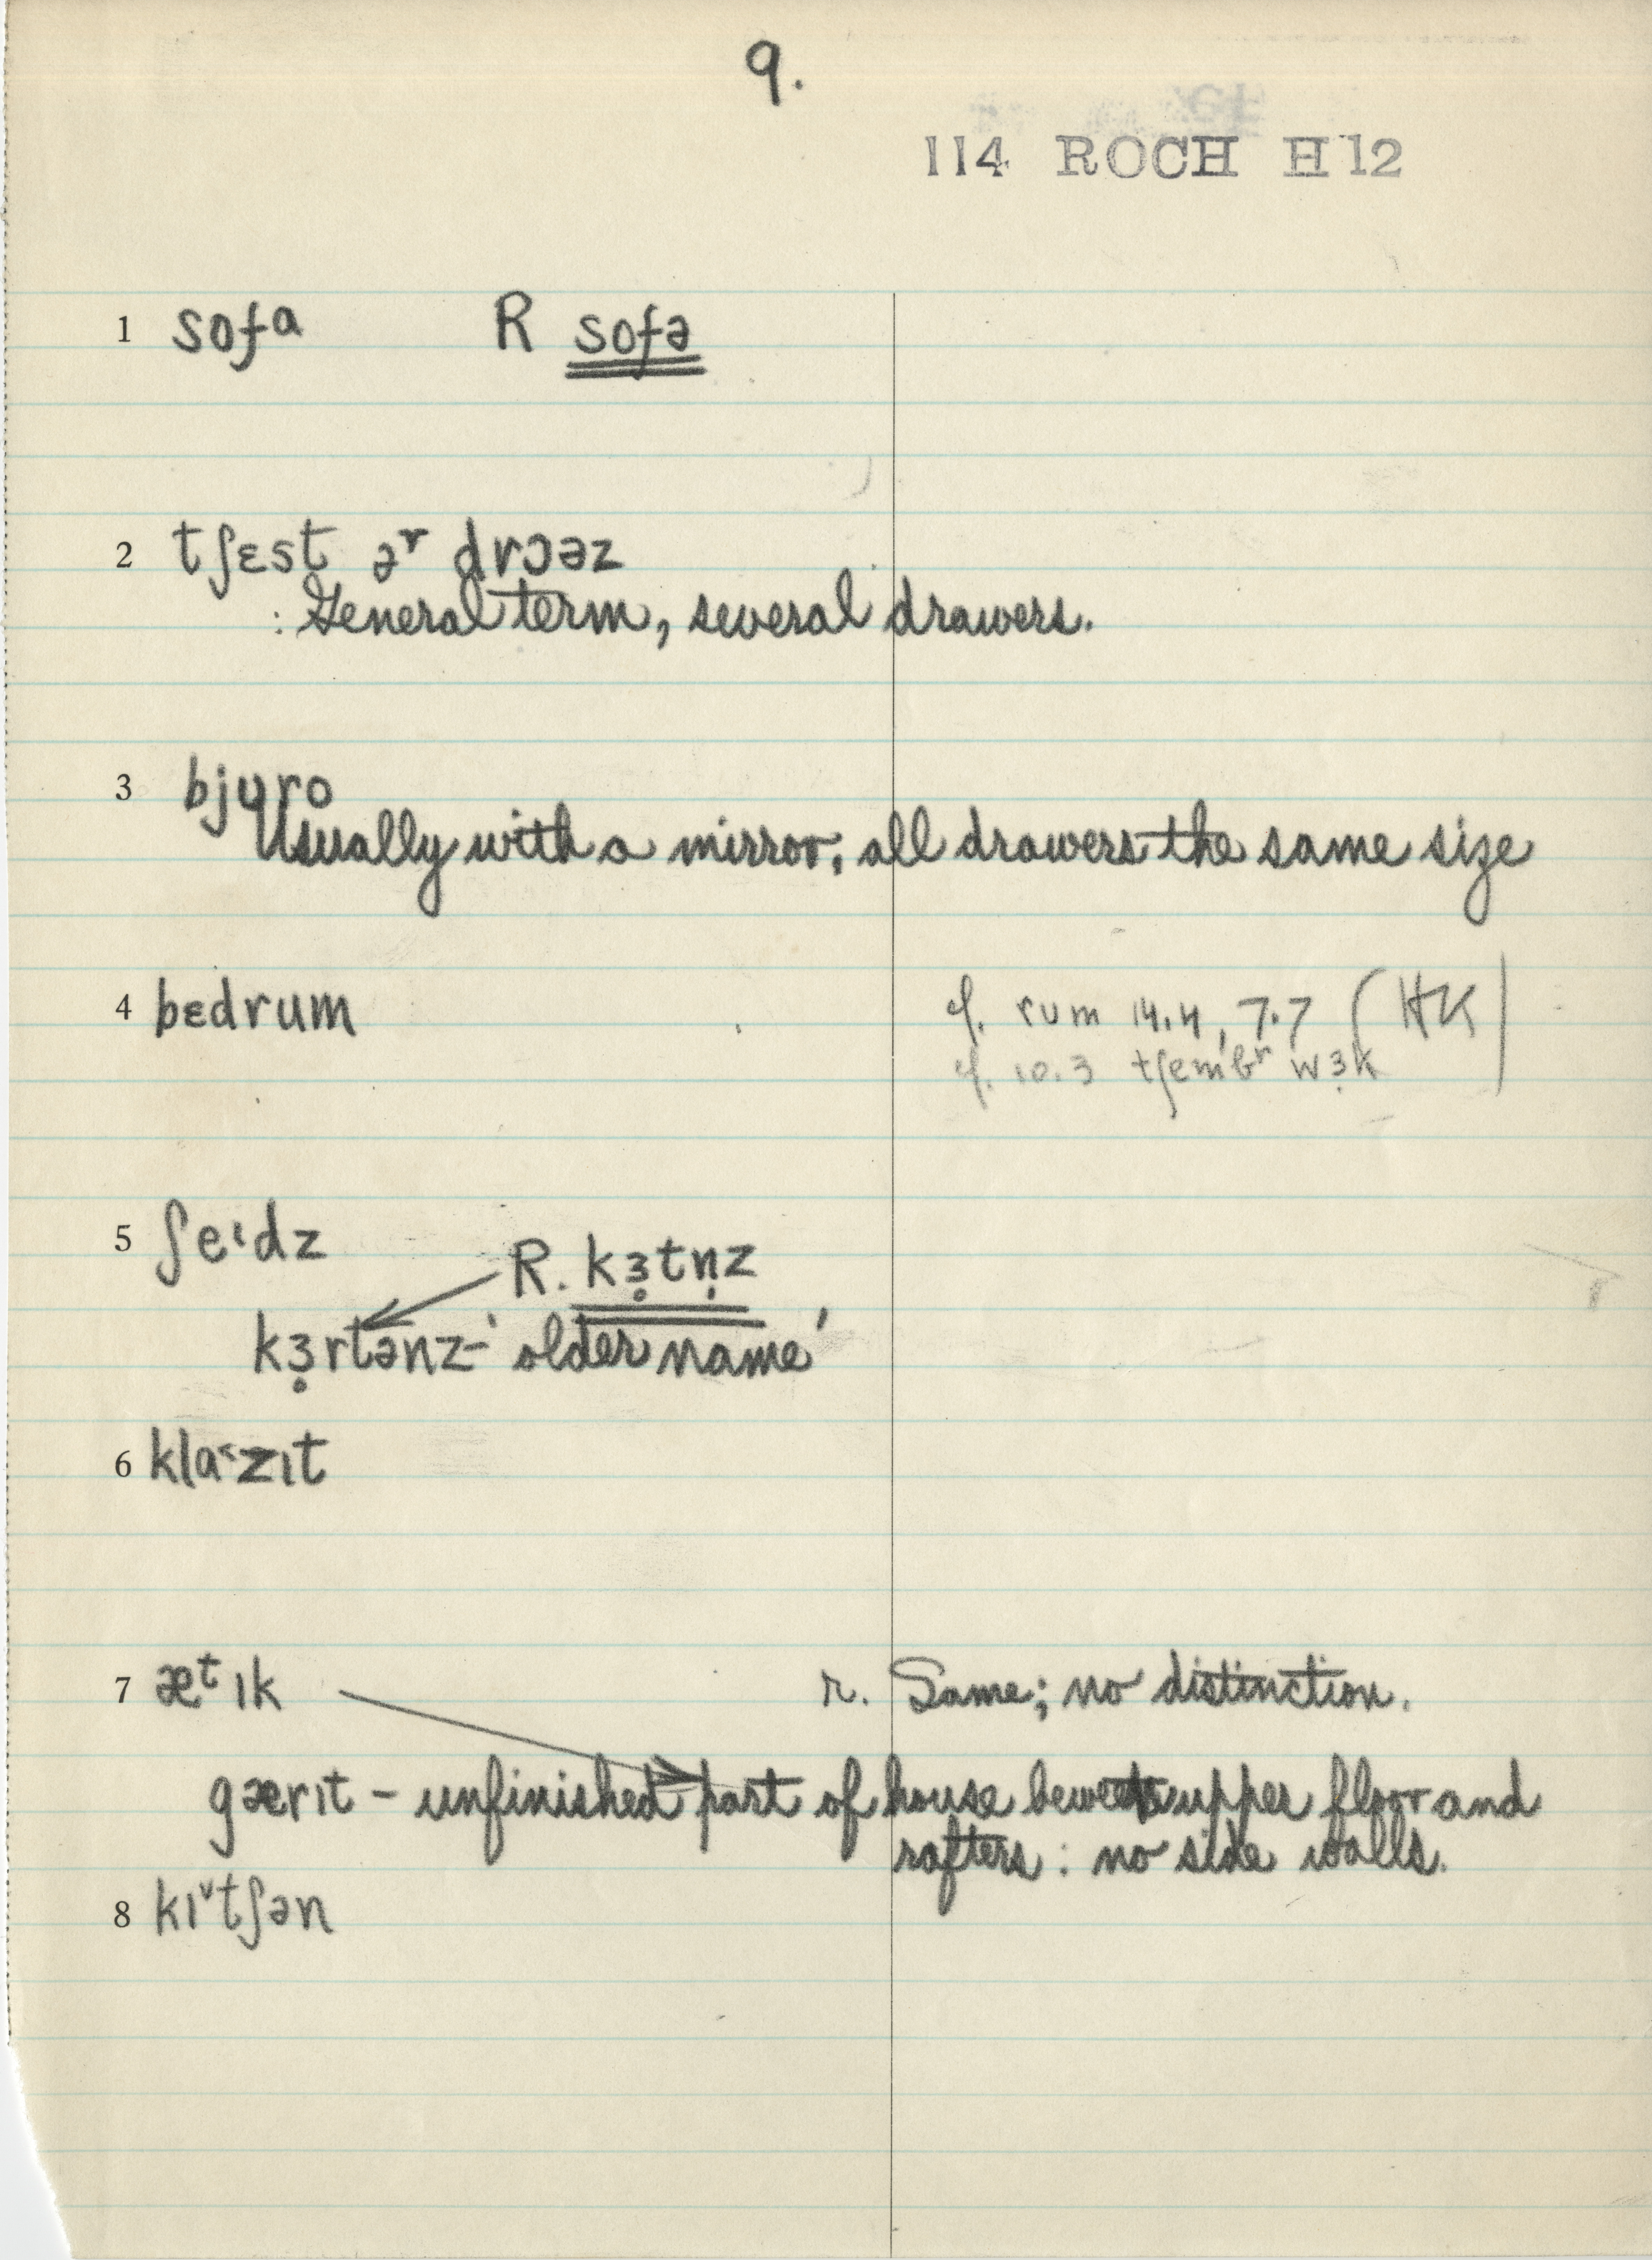 9.
114 ROCH H12
1 sofᵃ R sofə
2 tʃɛst əʳ drɔəz
: General term, several drawers.
3 bjuro
Usually with a mirror; all drawers the same size
4 bɛdrum cf. rum 14.4, 7.7 (HK)
cf. 10.3 tʃembʳ wɜ̣k
5 ʃe˂dz
R. kɜ̣tṇz
kɜ̣rtənz - 'older name'
6 kla˂zɪt
7 æᵗɪk r. Same; no distinction.
gærɪt - unfinished part of house beween upper floor and
rafters : no side walls.
8 kɪ˅tʃən